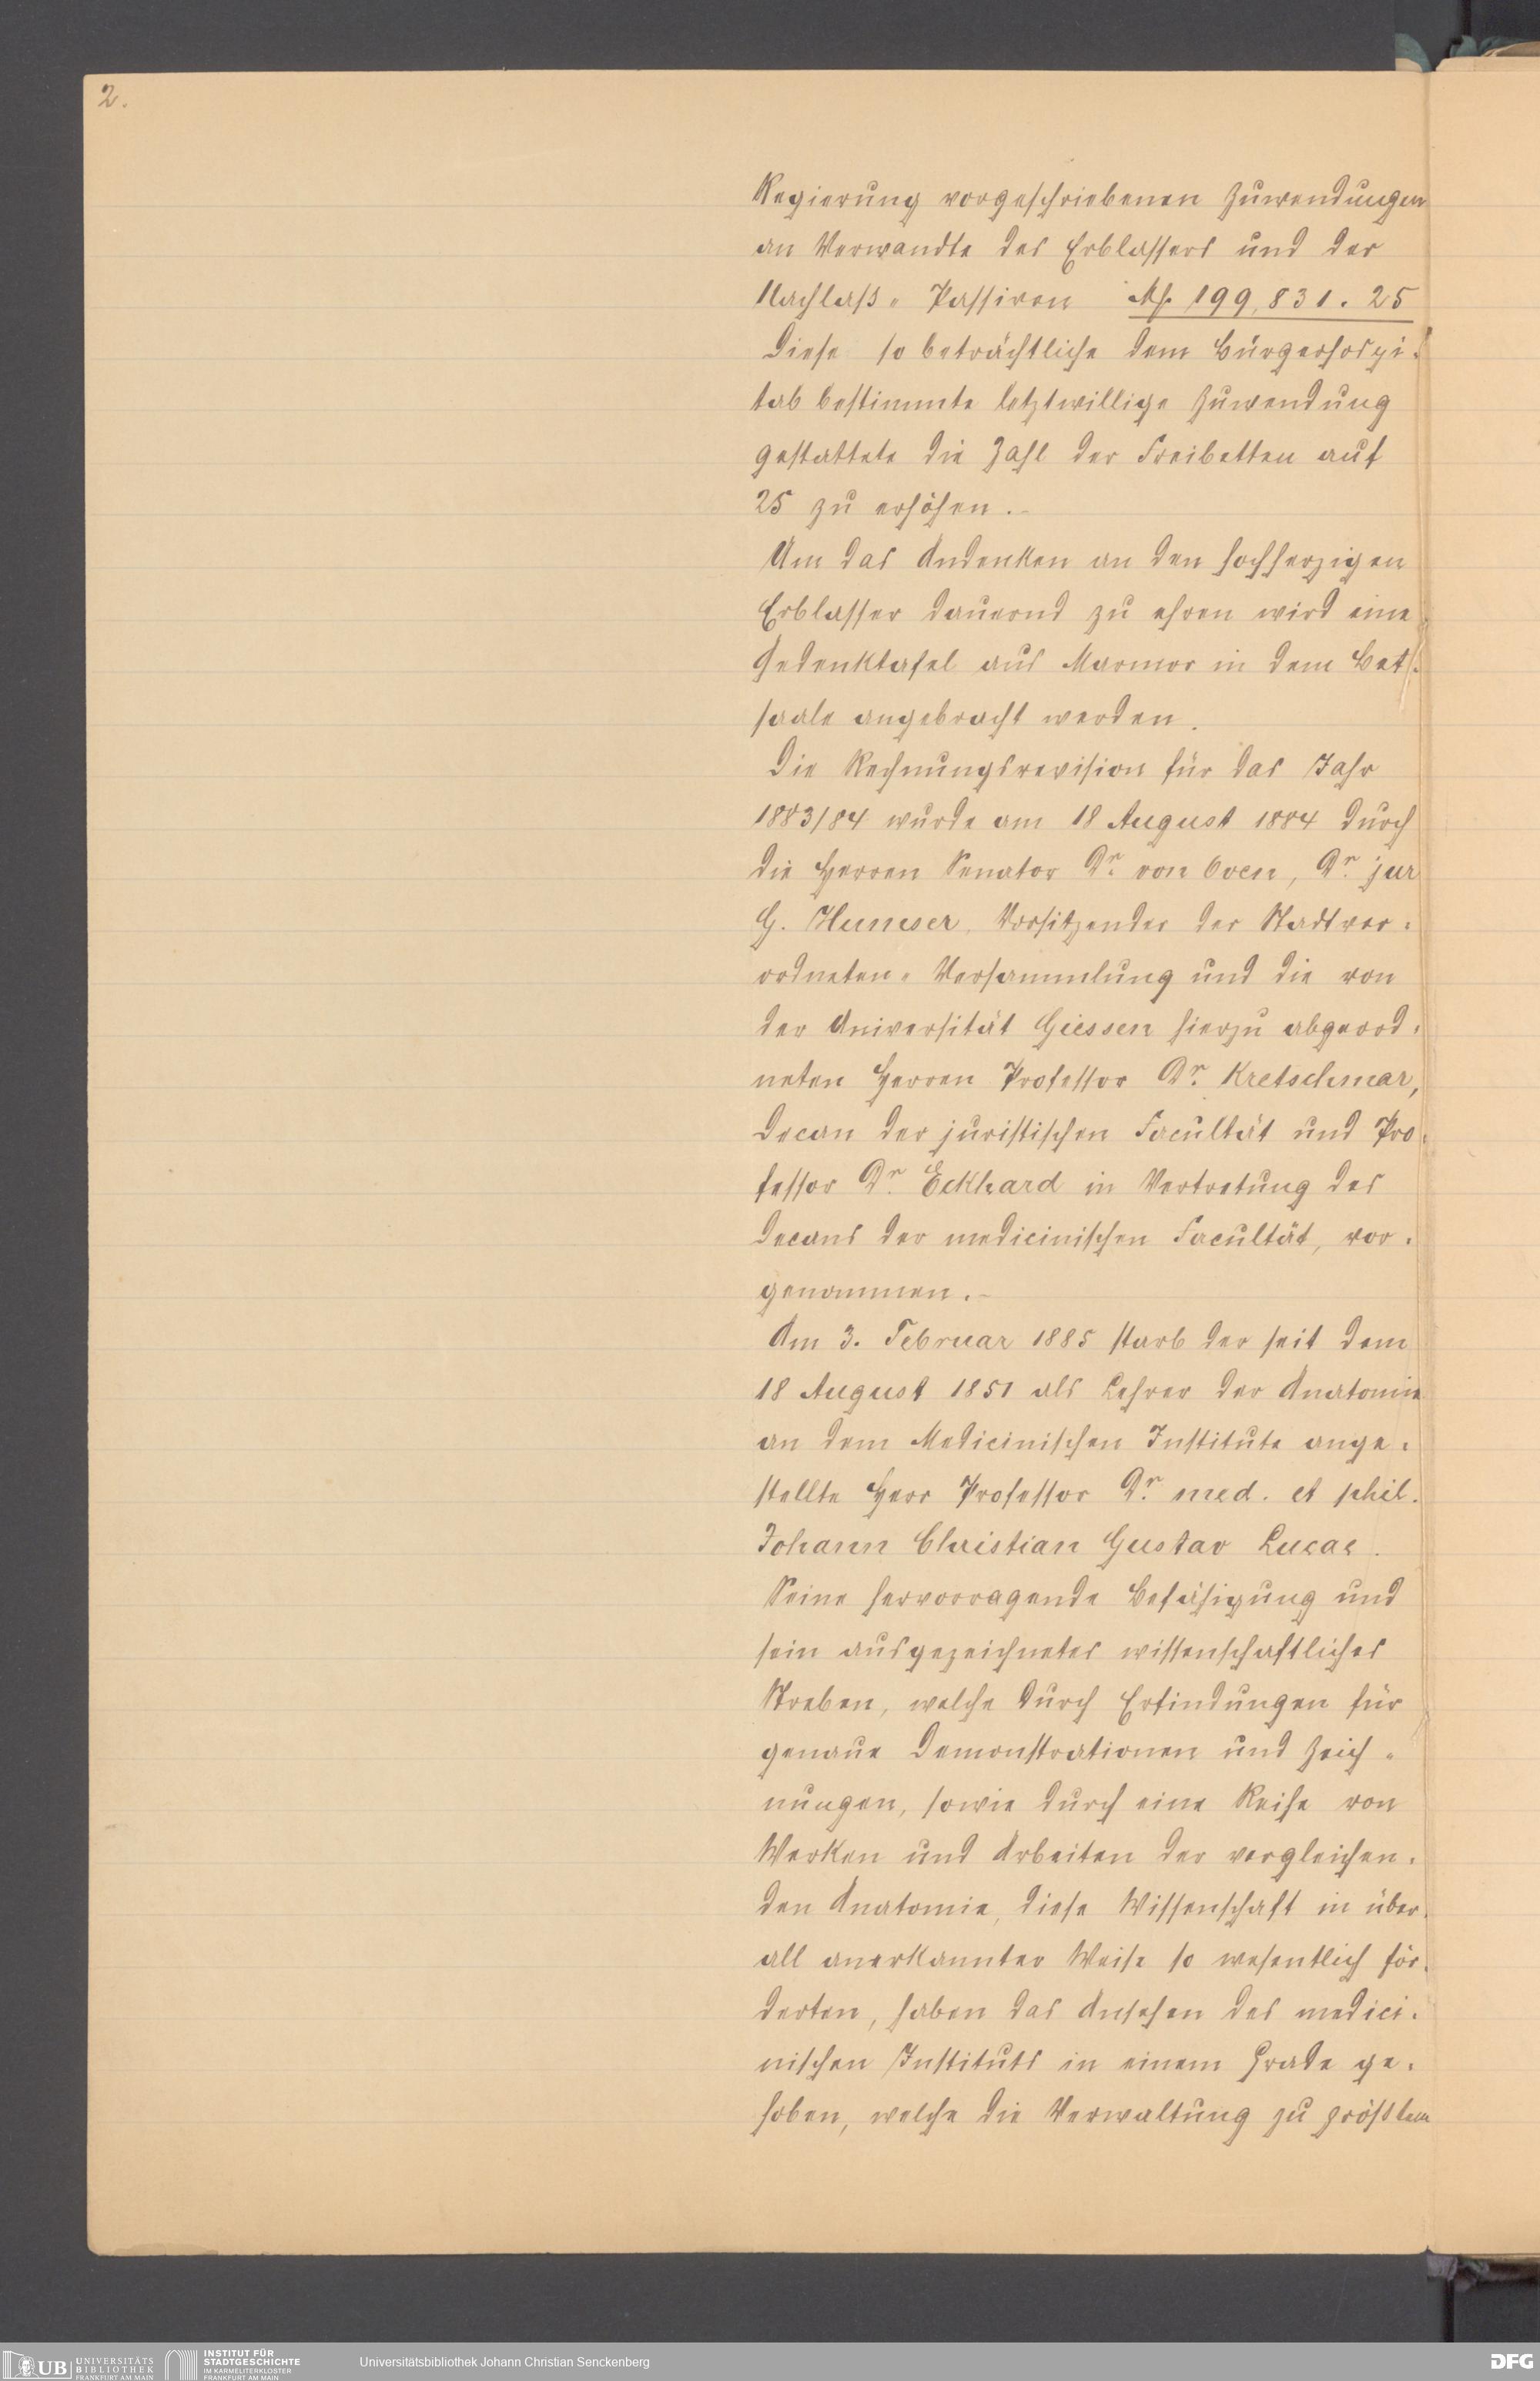 2.
Regierung vorgeschriebenen Zuwendungen
an Verwandte des Erblassers und der
Nachlaß-Passiven M. 199,831.25
Diese so beträchtliche dem Bürgerhospi-
tal bestimmte letztwillige Zuwendung
gestattete die Zahl der Freibetten auf
25 zu erhöhen.-
Um das Andenken an den hochherzigen
Erblasser dauernd zu ehren wird eine
Gedenktafel aus Marmor in dem Bet-
saale angebracht werden.
Die Rechnungsrevision für das Jahr
1883/84 wurde am 18 August 1884 durch
die Herren Senator Dr. von Oven, Dr. jur
G. Humser, Vorsitzender der Stadtver-
ordneten-Versammlung und die von
der Universität Giessen hierzu abgeord-
neten Herren Professor Dr. Kretschmar,
Decan der juristischen Facultät und Pro-
fessor Dr. Eckhard in Vertretung des
Decans der medicinischen Facultät, vor-
genommen.-
Am 3. Februar 1885 starb der seit dem
18 August 1851 als Lehrer der Anatomie
an dem Medicinischen Institute ange-
stellte Herr Professor Dr. med. et phil.
Johann Christian Gustav Lucae.
Seine hervorragende Befähigung und
sein ausgezeichnetes wissenschaftliches
Streben, welche durch Erfindungen für
genaue Demonstrationen und Zeich-
nungen, sowie durch eine Reihe von
Werken und Arbeiten der vergleichen-
den Anatomie, diese Wissenschaft in über-
all anerkannter Weise so wesentlich för-
derten, haben das Ansehen des medici-
nischen Instituts in einem Grade ge-
hoben, welche die Verwaltung zu größtem
UB UNIVERSITÄTS
BIBLIOTHEK
FRANKFURT AM MAIN
INSTITUT FÜR
STADTGESCHICHTE
IM KARMELITERKLOSTER
FRANKFURT AM MAIN
Universitätsbibliothek Johann Christian Senckenberg
DFG